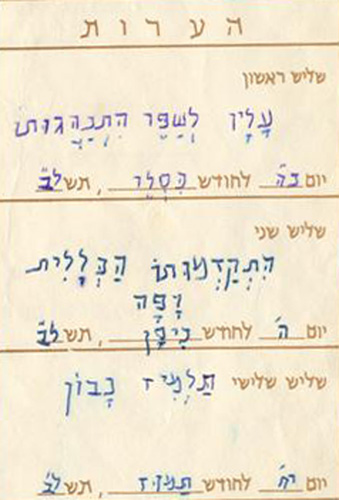 הערות
שליש ראשון
עָלָיו לְשַׁפֵּר הִתְנַהֲגוּתוֹ
יום כ"ה לחודש כִּסְלֵו, תשל"ב
שליש שני
הִתְקַדְּמוּתוֹ הַכְּלָלִית
יָפָה
יום ה' לחודש נִיסָן, תשל"ב
שליש שלישי תַּלְמִיד נָבוֹן
יום לחודש תַּמּוּז, תשל"ב